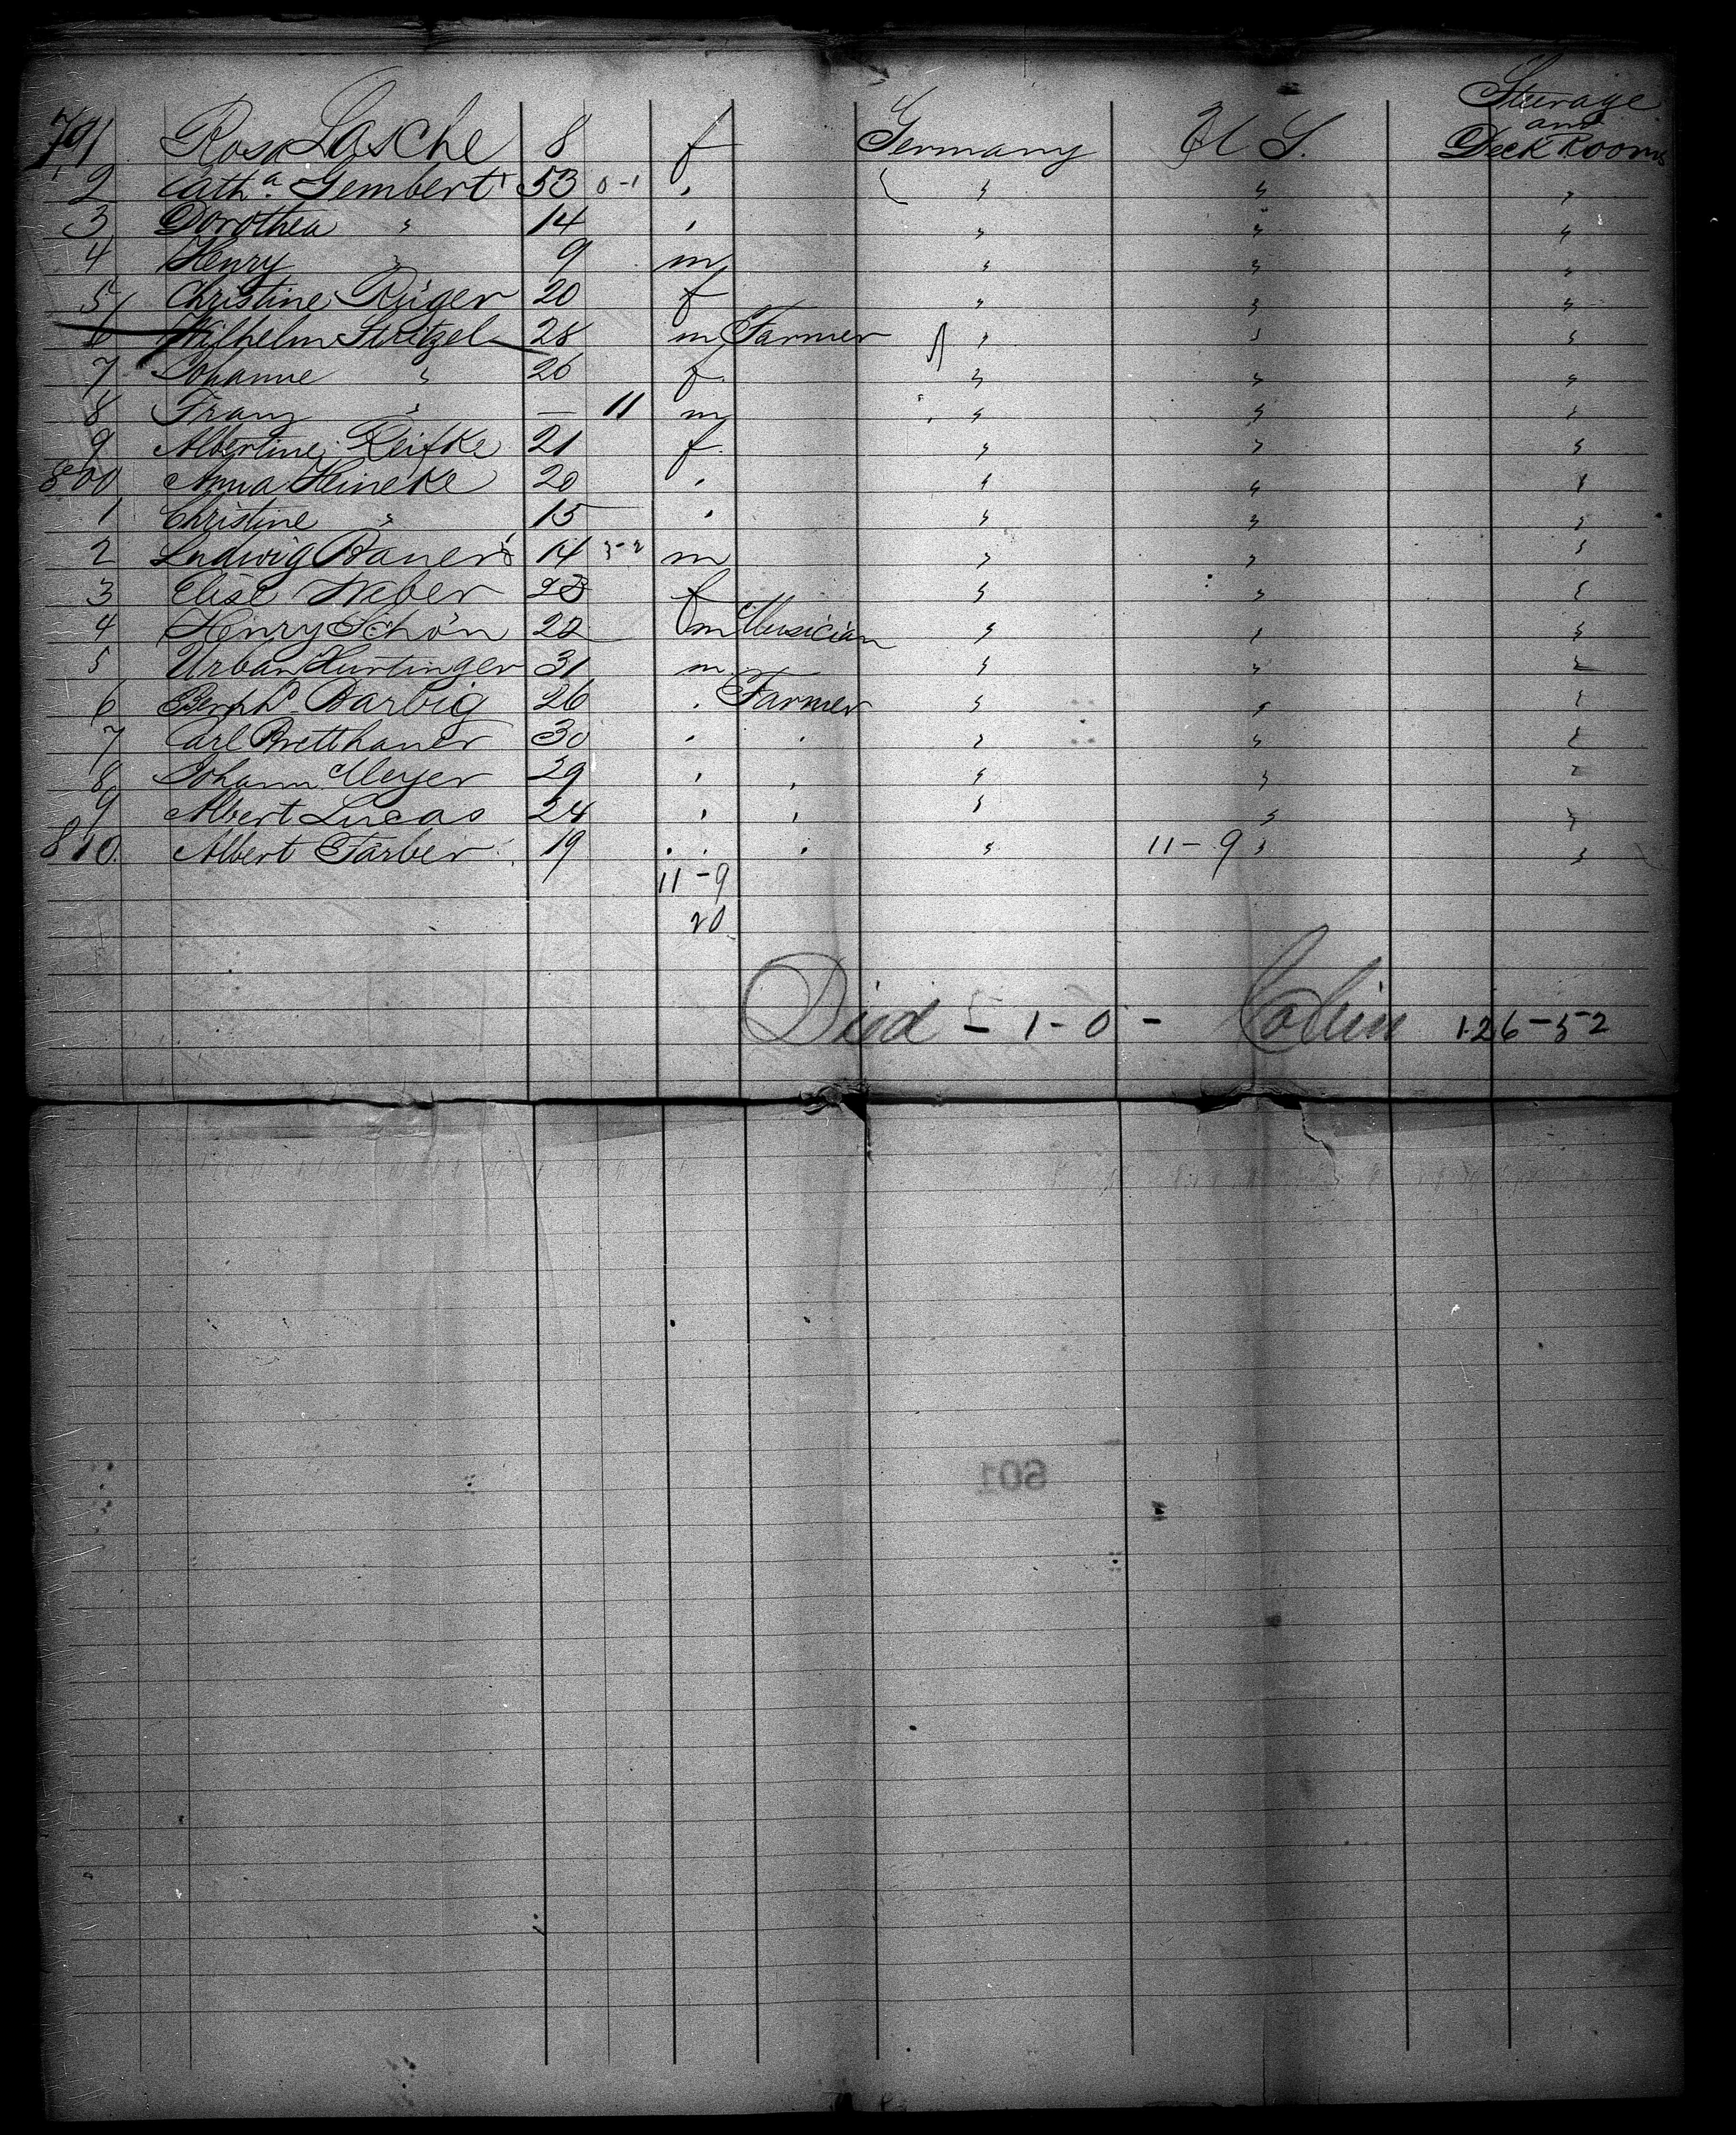 Steerage
and
791 Rosa Lasche 8 f Germany U S. Deck Rooms
2 Cath.a Gembert 53 0-1 " " " "
3 Dorothea " 14 " " " "
4 Henry " 9 m " " "
5 Christine Rüger 20 f " " "
6 Wilhelm Stritzel 28 m Farmer " " "
7 Johanne " 26 f. " " "
8 Franz " — 11 m " " "
9 Albertine Reifke 21 f. " " "
800 Anna Heineke 20 " " " "
1 Christine " 15 " " " "
2 Ludwig Bauer 14 3-2 m " " "
3 Elise Weber 23 f " " "
4 Henry Schön 22 m Musician " " "
5 Urban Hurtinger 31 m " " "
6 Bernh.d Barbig 26 " Farmer " " "
7 Carl Bretthauer 30 " " " " "
8 Johann Meyer 29 " " " " "
9 Albert Lucas 24 " " " " "
810. Albert Farber 19 " " " 11-9 " "
11-9
20
Died - 1-0 - Cabin 126-52
601